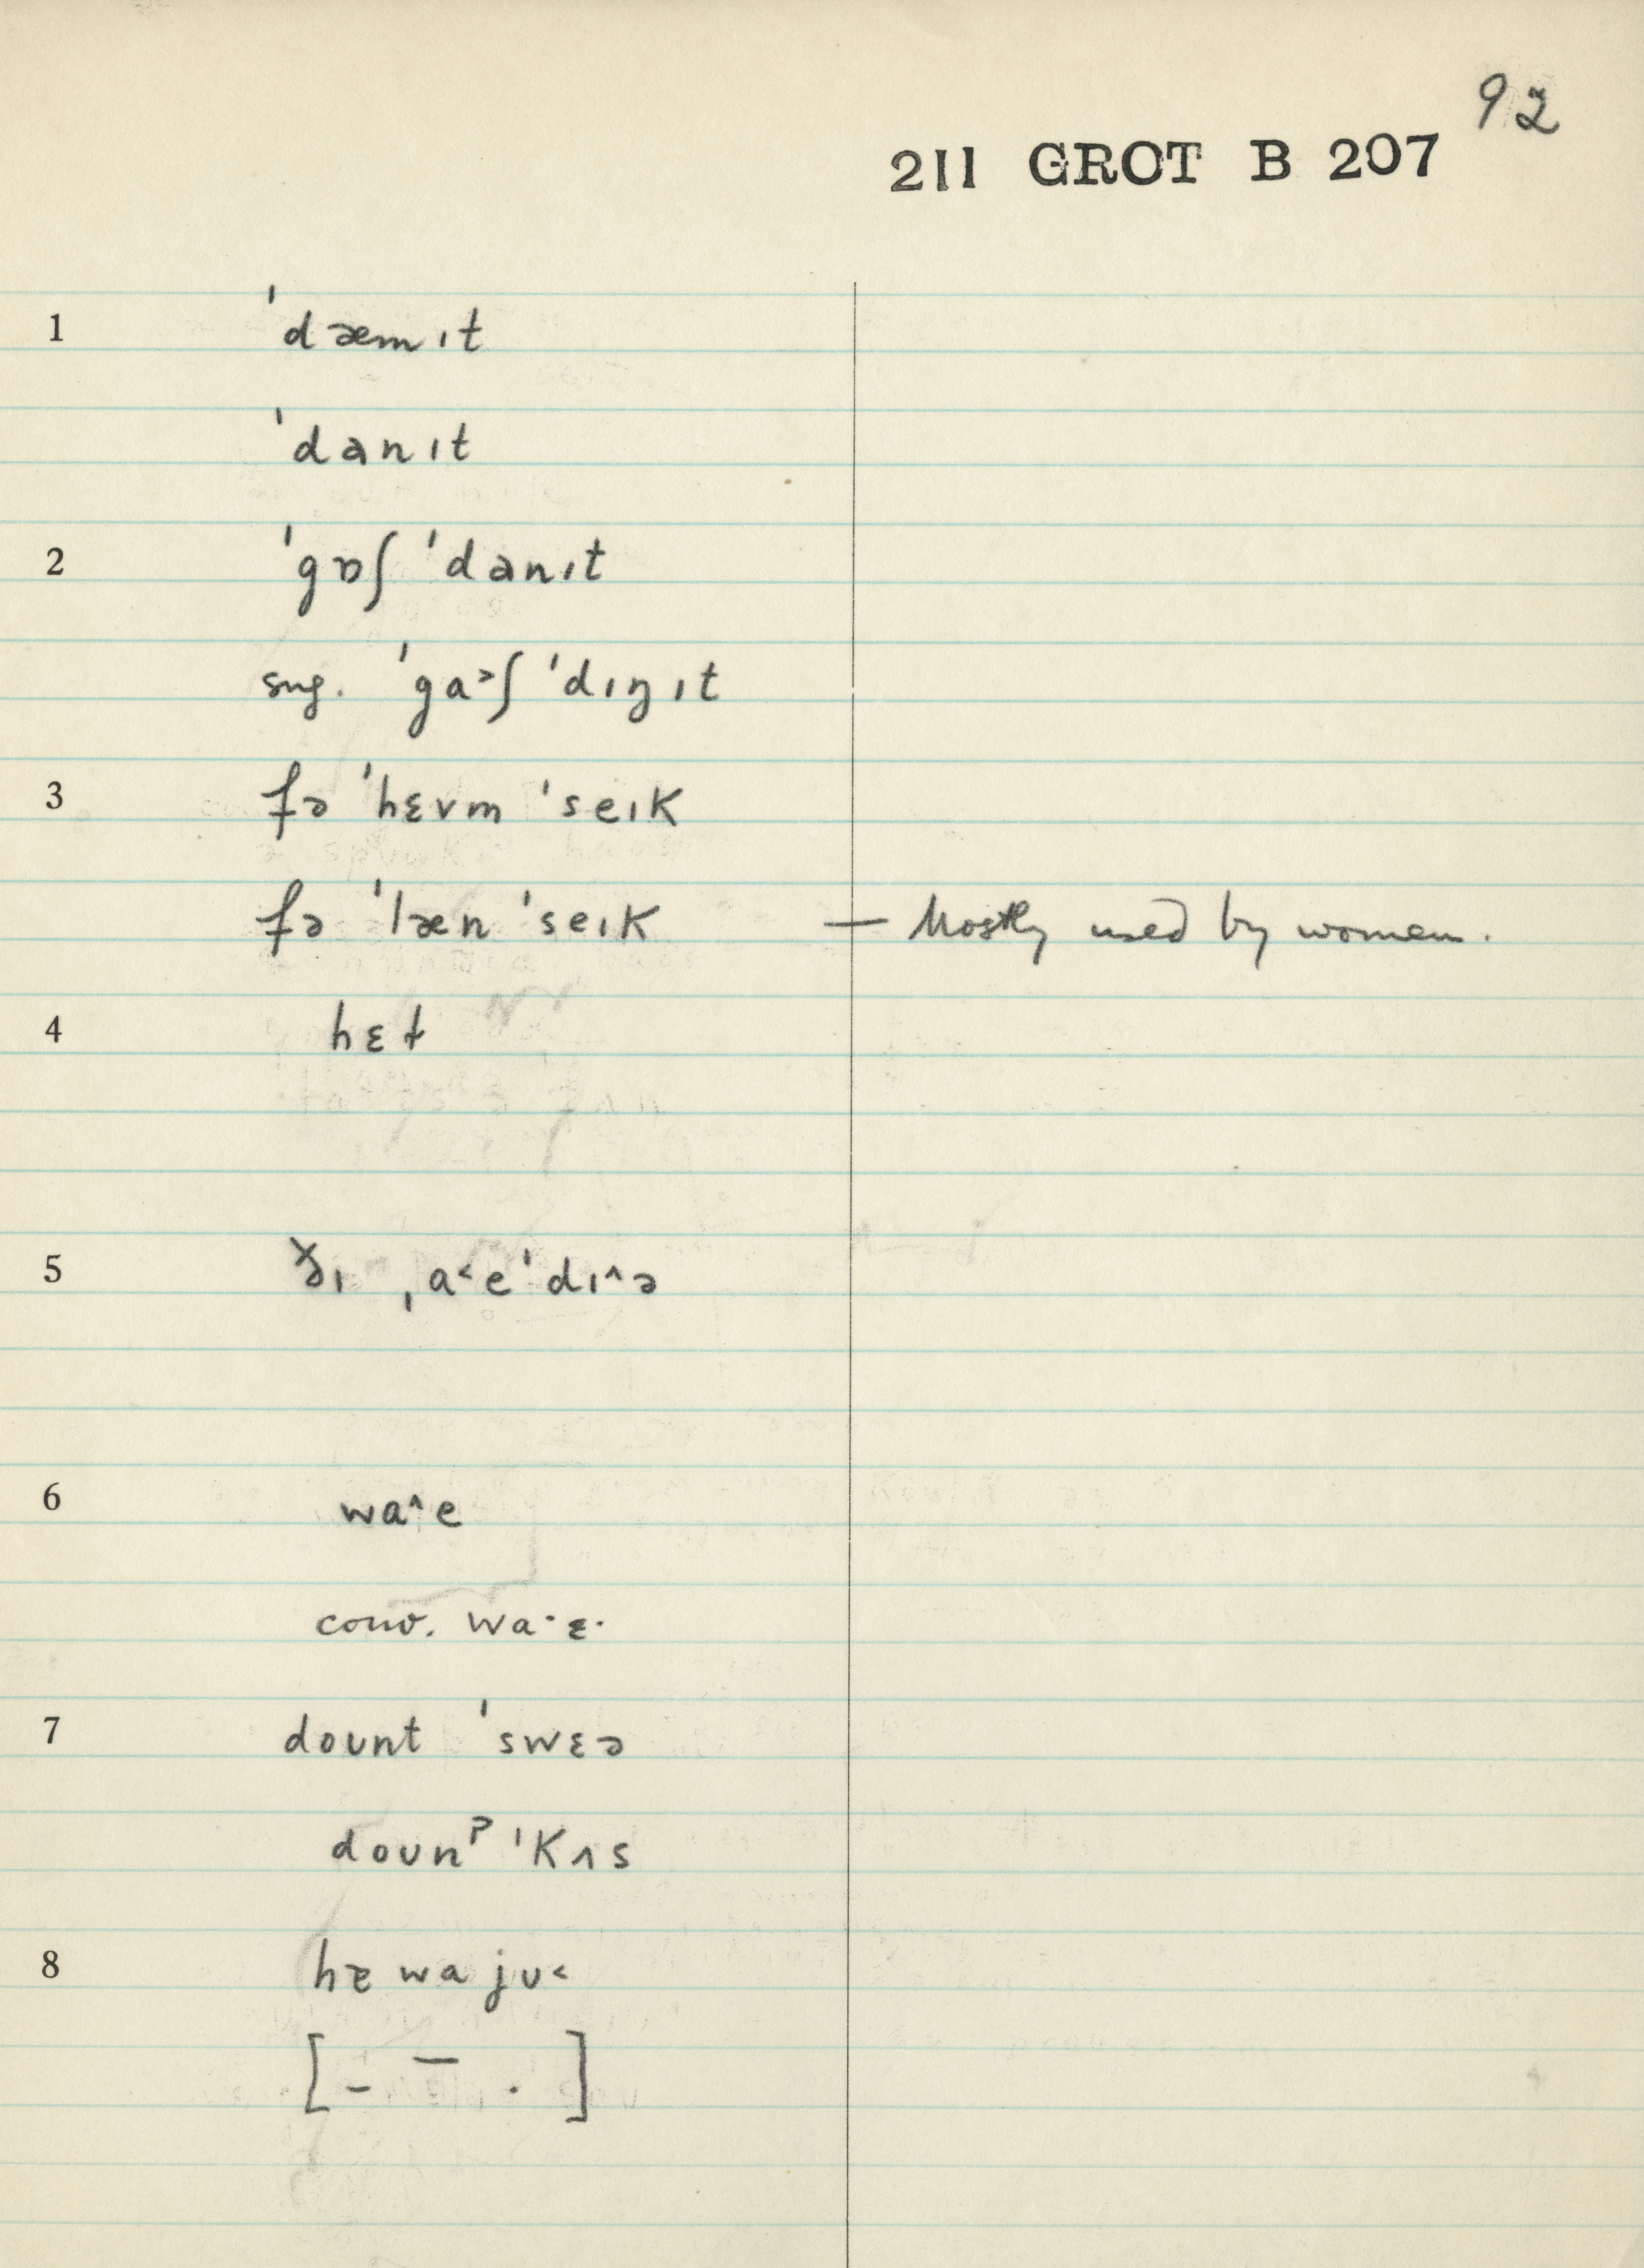 92
211 GROT B 207
1 ˈdæmɪt
ˈdanɪt
2 ˈgɒʃ ˈdanɪt
sug. ˈga˃ʃ ˈdɪŋɪt
3 fə ˈhɛvm ˈseɪk
fə ˈlæn ˈseɪk — Mostly used by women.
4 hɛɫ
5 ðɪ ˌa˂eˈdɪ^ə
6 wa^e
conv. wa·ɛ·
7 doʊnt ˈswɛə
doʊnᵖ ˈkʌs
8 hɐ wa jʊ˂
[ – — . ]